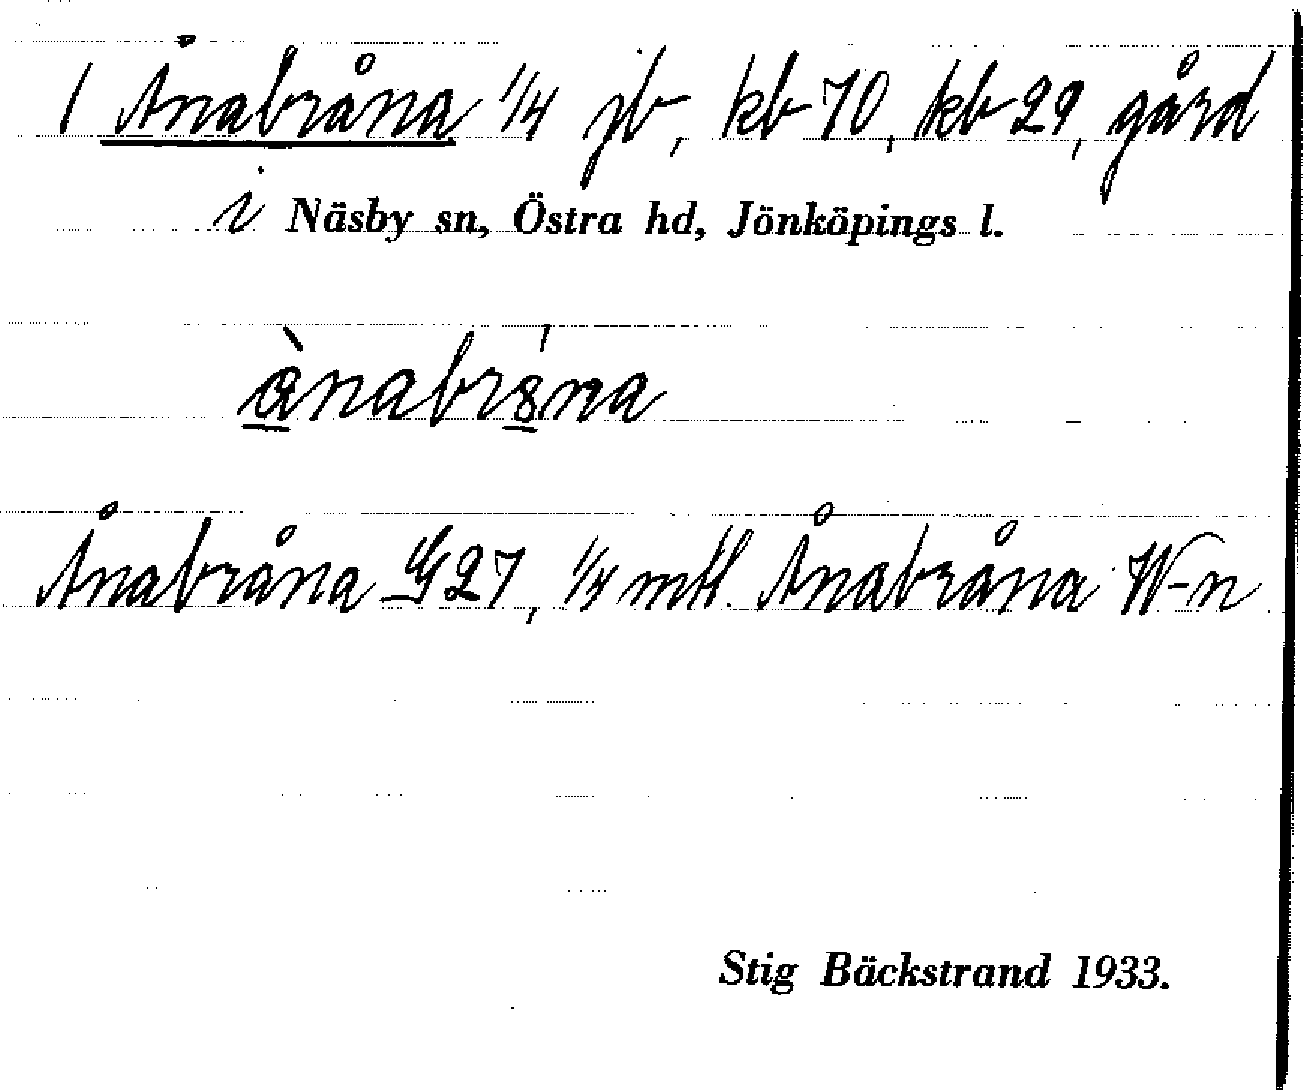 1 Ånabråna 1/4 jb, kb 70, kb 29, gård
i Näsby sn, Östra hd, Jönköpings l.
ånabrå̱na
Ånabråna G 27, 1/4 mtl. Ånabråna W-n
Stig Bäckstrand 1933.